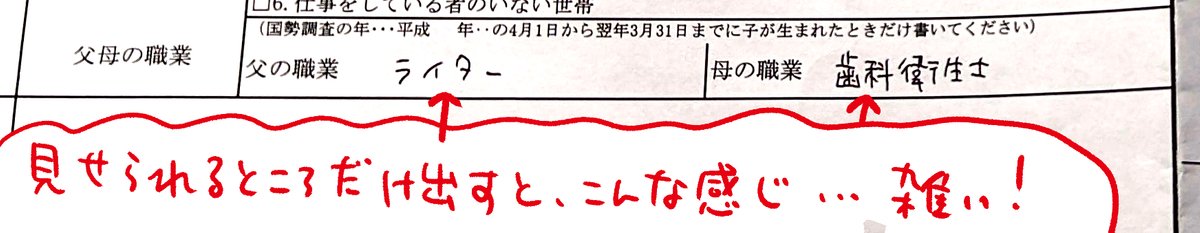 □6. 仕事をしている者のいない世帯
(国勢調査の年･･･平成　年･･の4月1日から翌年3月31日までに子が生まれたときだけ書いてください)
父母の職業
父の職業 ライター
母の職業 歯科衛生士
見せられるところだけ出すと、こんな感じ… 雑い!